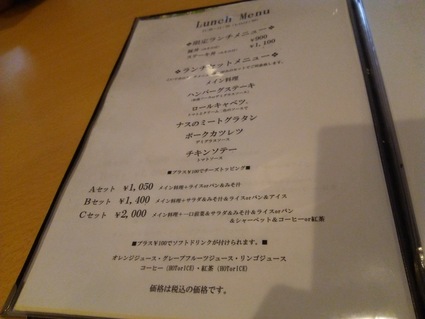 Lunch Menu
❖限定ランチメニュー❖
¥900
¥1,100
❖ランチセットメニュー❖
メイン料理
ハンバーグステーキ
ロールキャベツ
ナスのミートグラタン
ポークカツレツ
デミグラスソース
チキンソテー
トマトソース
■プラス¥100でチーズトッピング■
Aセット ¥1,050 メイン料理+ライスorパン&みそ汁
Bセット ¥1,400 メイン料理+サラダ&みそ汁&ライスorパン&アイス
Cセット ¥2,000 メイン料理+一口前菜&サラダ&みそ汁&ライスorパン
&シャーベット&コーヒーor紅茶
■プラス¥100でソフトドリンクが付けられます。■
オレンジジュース・グレープフルーツジュース・リンゴジュース
コーヒー(HOTorICE)・紅茶(HOTorICE)
価格は税込の価格です。